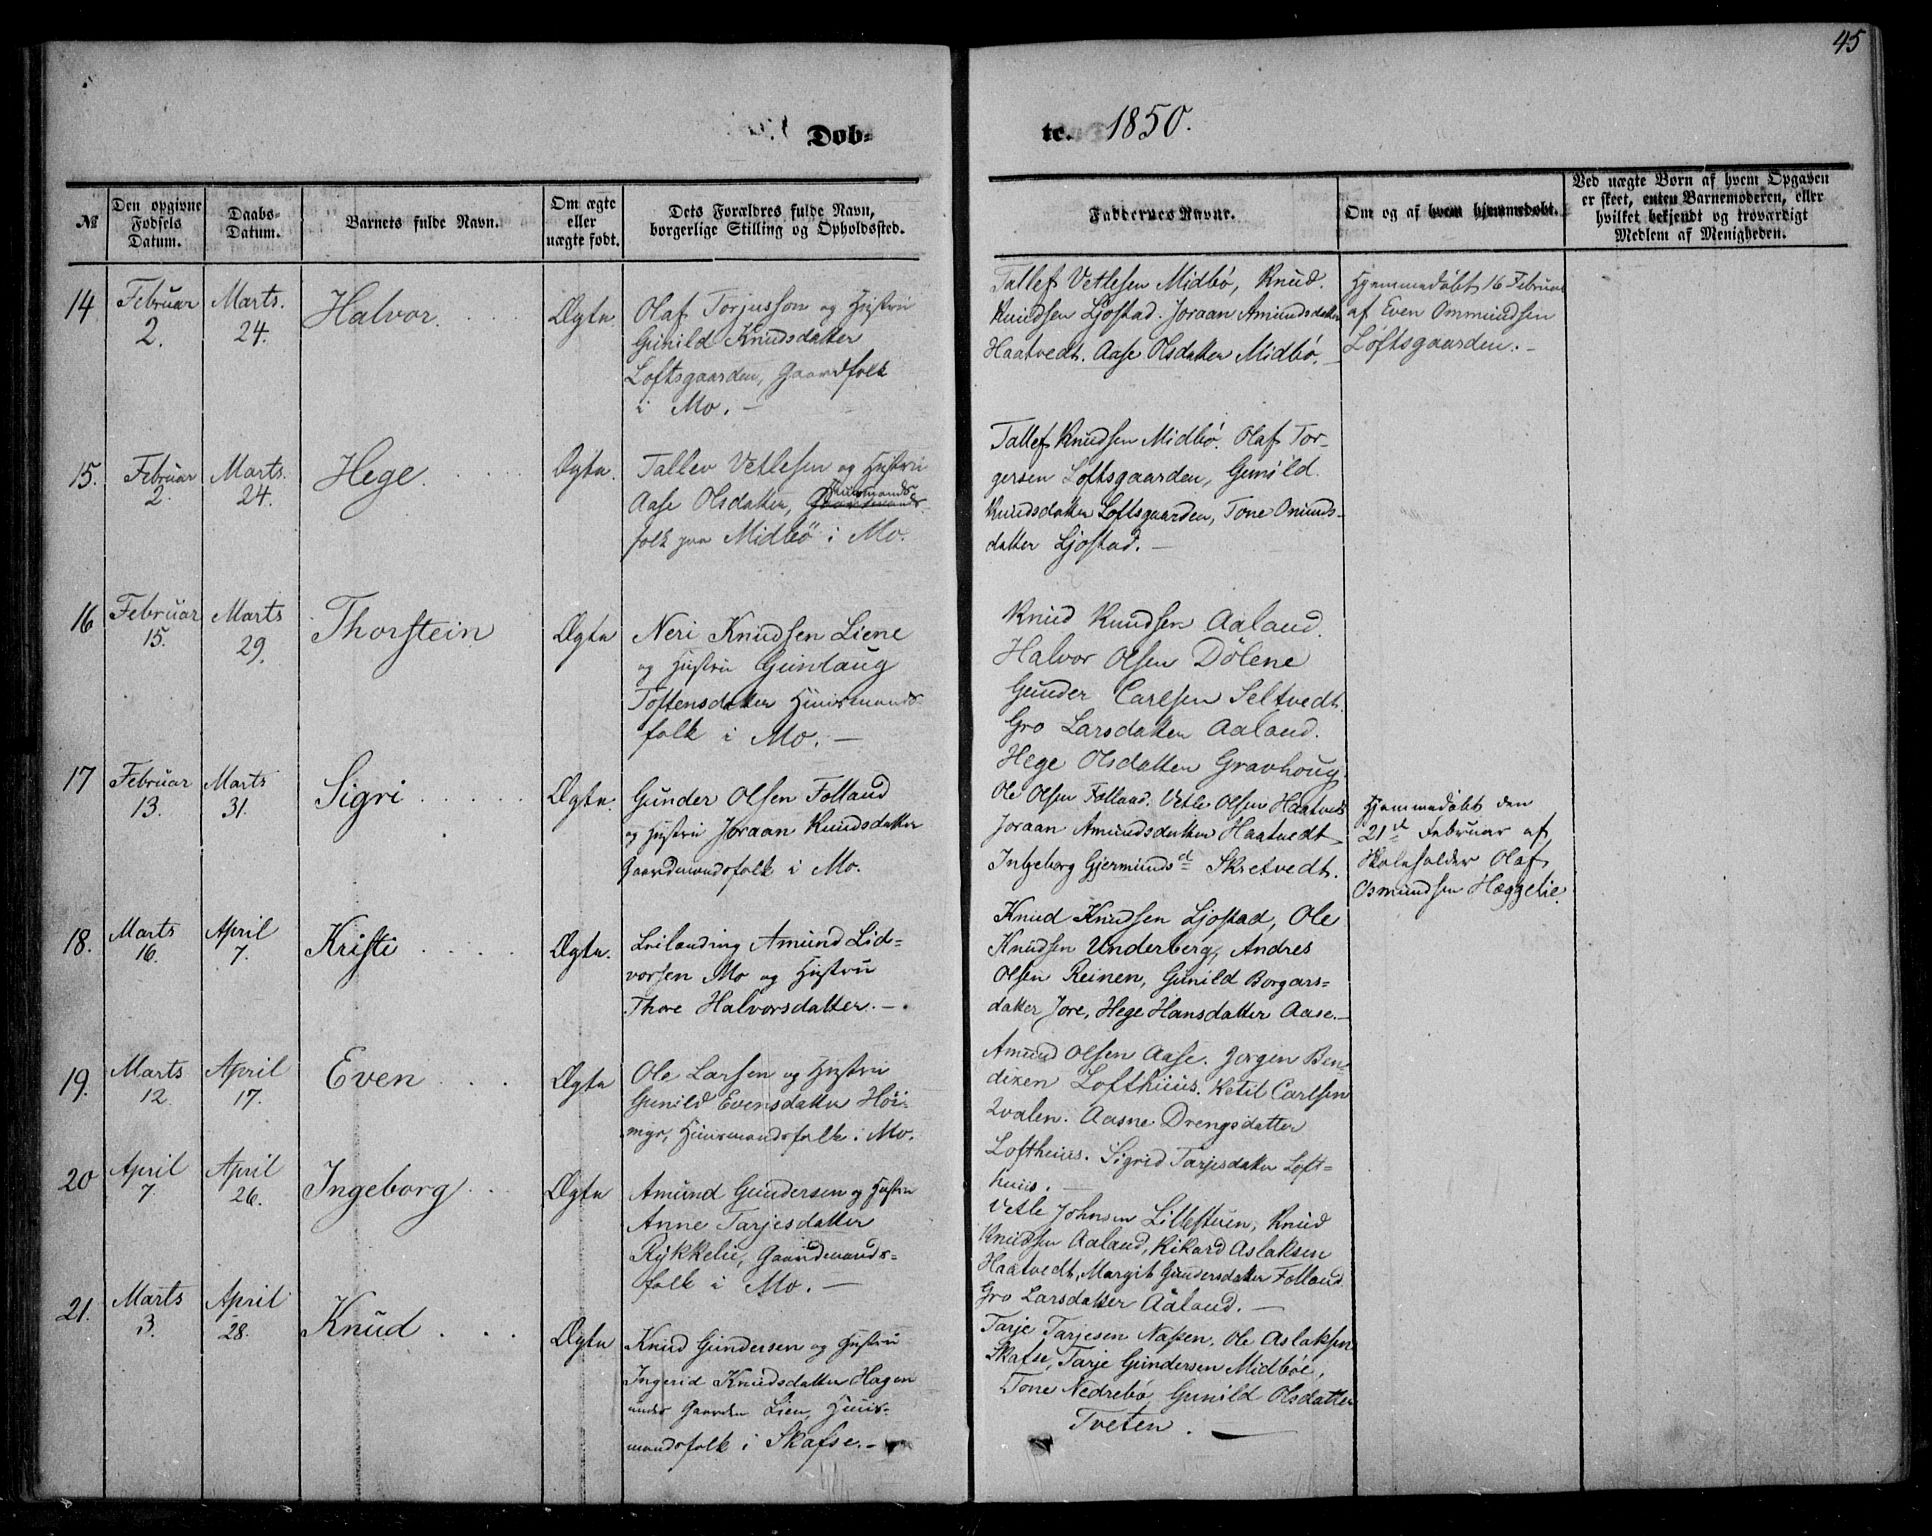 45
Døb-
te. 1850.
№
Den opgivne
Fødsels
Datum.
Daabs-
Datum.
Barnets fulde Navn.
Om ægte
eller
uægte født.
Dets Forældres fulde Navn,
borgerlige Stilling og Opholdssted.
Faddernes Navne.
Om og af hvem hjemmedøbt.
Ved uægte Børn af hvem Opgaven
er skeet, enten Barnemoderen, eller
hvilket bekjendt og troværdigt
Medlem af Menigheden.
14
Februar
2.
Marts.
24.
Halvor.
Ægte
Olaf Torjusson og Hustru
Gunild Knudsdatter
Loftsgaarden, Gaardfolk
i Mo. -
Tallef Vetlesen Midbø, Knud.
Knudsen Ljostad. Joraan Amundsdatter
Haatvedt. Aase Olsdatter Midbø.
Hjemmedøbt 16 Februar
af Even Ommundsen
Loftsgaarden. -
15.
Februar
2.
Marts.
24.
Hege.
Ægte.
Tallev Vetlesen og Hustru
Aase Olsdatter, Huusmands-
folk paa Midbø i Mo.
Tallef Knudsen Midbø. Olaf Tor-
gersen Loftsgaarden, Gunild
Knudsdatter Loftsgaarden, Tone Omunds-
datter Ljostad. -
16
Februar
15.
Marts
29.
Thorstein
Ægte
Neri Knudsen Liene
og Hustru Gunlaug
Tostensdatter Huusmands-
folk i Mo. -
Knud Knudsen Aaland.
Halvor Olsen Dølene
Gunder Carlsen Seltvedt.
Gro Larsdatter Aaland.
Hege Olsdatter Gravhoug.
17
Februar
13.
Marts
31.
Sigri
Ægte.
Gunder Olsen Folland
og Hustru Joraan Knudsdatter
Gaardmandsfolk i Mo.
Ole Olsen Folland. Vetle Olsen Haatvedt
Joraan Amundsdatter Haatvedt
Ingeborg Gjermundsd Skretvedt.
Hjemmedøbt den
21de Februar af
Skoleholder Olaf
Osmundsen Hæggelie.
18.
Marts
16.
April
7.
Kristi
Ægte.
Leilænding Amund Lid-
vorsen Mo og Hustru
Thore Halvorsdatter. -
Knud Knudsen Ljostad, Ole
Knudsen Underberg, Andres
Olsen Reinen, Gunild Borgars-
datter Jore, Hege Hansdatter Aase. -
19.
Marts
12.
April
17.
Even
Ægte
Ole Larsen og Hustru
Gunild Evensdatter Høi-
myr, Huusmandsfolk i Mo.
Amund Olsen Aase. Jørgen Ben-
dixen Lofthuus. Ketil Carlsen
Qvalen. Aasne Drengsdatter
Lofthuus. Sigrid Tarjesdatter Loft-
huus. -
20
April
7.
April
26.
Ingeborg
Ægte
Amund Gundersen og Hustru
Anne Tarjesdatter
Rykkelie, Gaardmands-
folk i Mo. -
Vetle Johnsen Lillestuen, Knud
Knudsen Aaland, Rikard Aslaksen
Haatvedt, Margit Gundersdatter Folland
Gro Larsdatter Aaland. -
21.
Marts
3.
April
28.
Knud
Ægte
Knud Gundersen og Hustru
Ingerid Knudsdatter Hagen
under Gaarden Lien, Huus-
mandsfolk i Skafse. -
Tarje Tarjesen Napen, Ole Aslaksen
Skafse, Tarje Gundersen Midbøe,
Tone Nedrebø, Gunild Olsdatter
Tveten. -